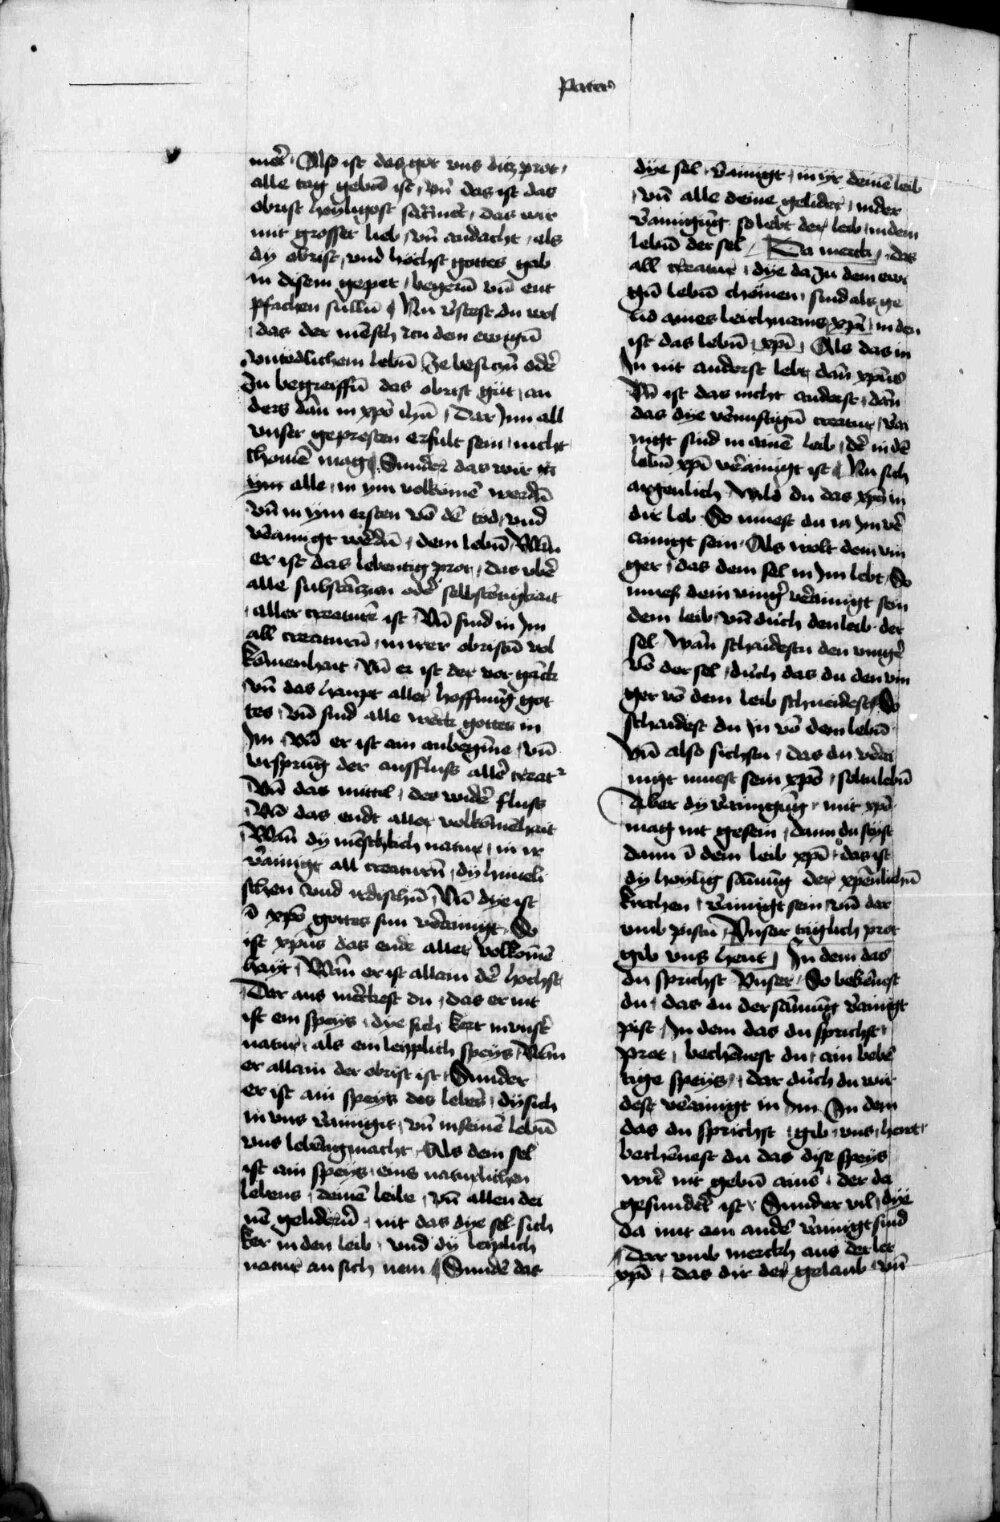 Pater
mēt · Also ist das got vns ditz prot ·
alle tag gebūd ist · vn̄ das ist das
obrist hoyligost sacrmēt · das wir
mit grosser lieb · vn̄ andacht · als
dy obrist · vnd höchst gottes gab
in disem gepet · begerū vn̄ ent
pfachen sulln̄ ¶ Nu v̄stest du wol
· das der mēsch zcu dem ewigū
vntödlichem lebū Ze besiczn̄ odē
Zu begreiffn̄ das obrist gut · an
ders dān in xp̄o ih̄u · Dar Inn all
vnser gepresten erfult sein · nicht
chomē mag ¶ Sunder das wir mit
ym alle · in ym volkumē werdn̄
vn̄ in ym ersten vō dē tod · vnd
verainigt wērdn̄ · dem lebū · Wān
er ist das lebentig prot · das vbē
alle substātzien odē selbstētigkait
· aller creaturē ist · Vn̄ sind in Im
all creaturn̄ · in irer obristū vol
kōmenhait · Vn̄ er ist der vor gāck
vn̄ das haupt aller hoffnūg got
tes · vn̄ sind alle werck gottes in
Im · Vn̄ er ist ain anbegīne · vn̄
vrsprūg der ausfluss allē creat᷑
Vn̄ das mittel · des widē fluss
Vn̄ das endt aller volkōmēhait
Wān dy mēschlich natur · in ir
v̄ainigt all creaturn̄ · dy himeli
schen vnd irdischn̄ · Vn̄ dye ist
ī xp̄o gottes sun v̄erainigt · So
ist xp̄us das ende aller volkōmē
hayt · Wān er ist allain dē hochst
Dar aus mērkest du · das er nit
ist ein speys · dye sich kert in vnsē
natur · als ein leyplich speys · Wān
er allain der obrist ist · Sunder
er ist ain speys des lebēs · dy sich
in vns v̄ainigt · vn̄ in seinē lebū
vns lebēdig macht · Als dein sel
ist ain speys · eins naturlichen
lebens · deinē leibe · vn̄ allen dei
nē gelidern̄ · nit das dye sel · sich
ker in den leib · vnd dy leyplich
natur an sich nem ¶ Sundē das
dye sel · v̄ainigt · in yr deinē leib
· vn̄ alle deine gelider · in der
v̄ainigūg so lebt der leib · in dem
lebū der sel · Da merck · das
all creatur · dye da zu dem ewi
gū lebū chömen · sind als ge
lid aines leichnams xp̄i · in den
ist das lebū · xp̄i · Als das in
In nit anderst lebt dān xp̄us
Vn̄ ist das nicht anderst · dān
das dye vernuftigū creatur · v̄ai
nigt sind in ainē leib · dē in dē
lebū xp̄i vērainigt ist ¶ Nu sich
aygenlich · Wild du das xp̄us in
dir leb · So muest du in Im vē
rainigt sein · Als wolt dein vin
ger · das dein sel in Im lebt · So
mues dein vingē verainigt sein
dem leib · vn̄ durch den leib · der
sel · wān schaidestu den vingē
vō der sel · durch das du den vin
ger vō dem leib schneidest · So
schaidest du In vō dem lebū ·
Vn̄ also sichstu · das du vērai
nigt muest sein xp̄o · soltu lebū
Aber dy v̄ainigūg · mit xp̄o
mag nit gesein · dann du seyst
dann ī dem leib xp̄i · das ist
dy hoylig samūg der xp̄enlichū
kirchen · v̄ainigt sein · vn̄ dar
vmb pistu · Vnser täglich prot
gib vns heut · In dem das
du sprichst Vnser · So bekēnest
du · das du der samūg v̄ainigt
pist · In dem das du sprichst ·
prot · bechēnest du · ain lebē
tige speys · dar durch du wir
dest vērainigt in Im · In dem
das du sprichst · gib · vns · heut ·
bechēnest du das dise speys
wirt nit gebū ainē · der da
gesundert ist · Sunder vil · dye
da mit ain andē v̄ainigt sind
· Dar vmb merckh aus der ler
xp̄i · das dir der gelaub · vn̄